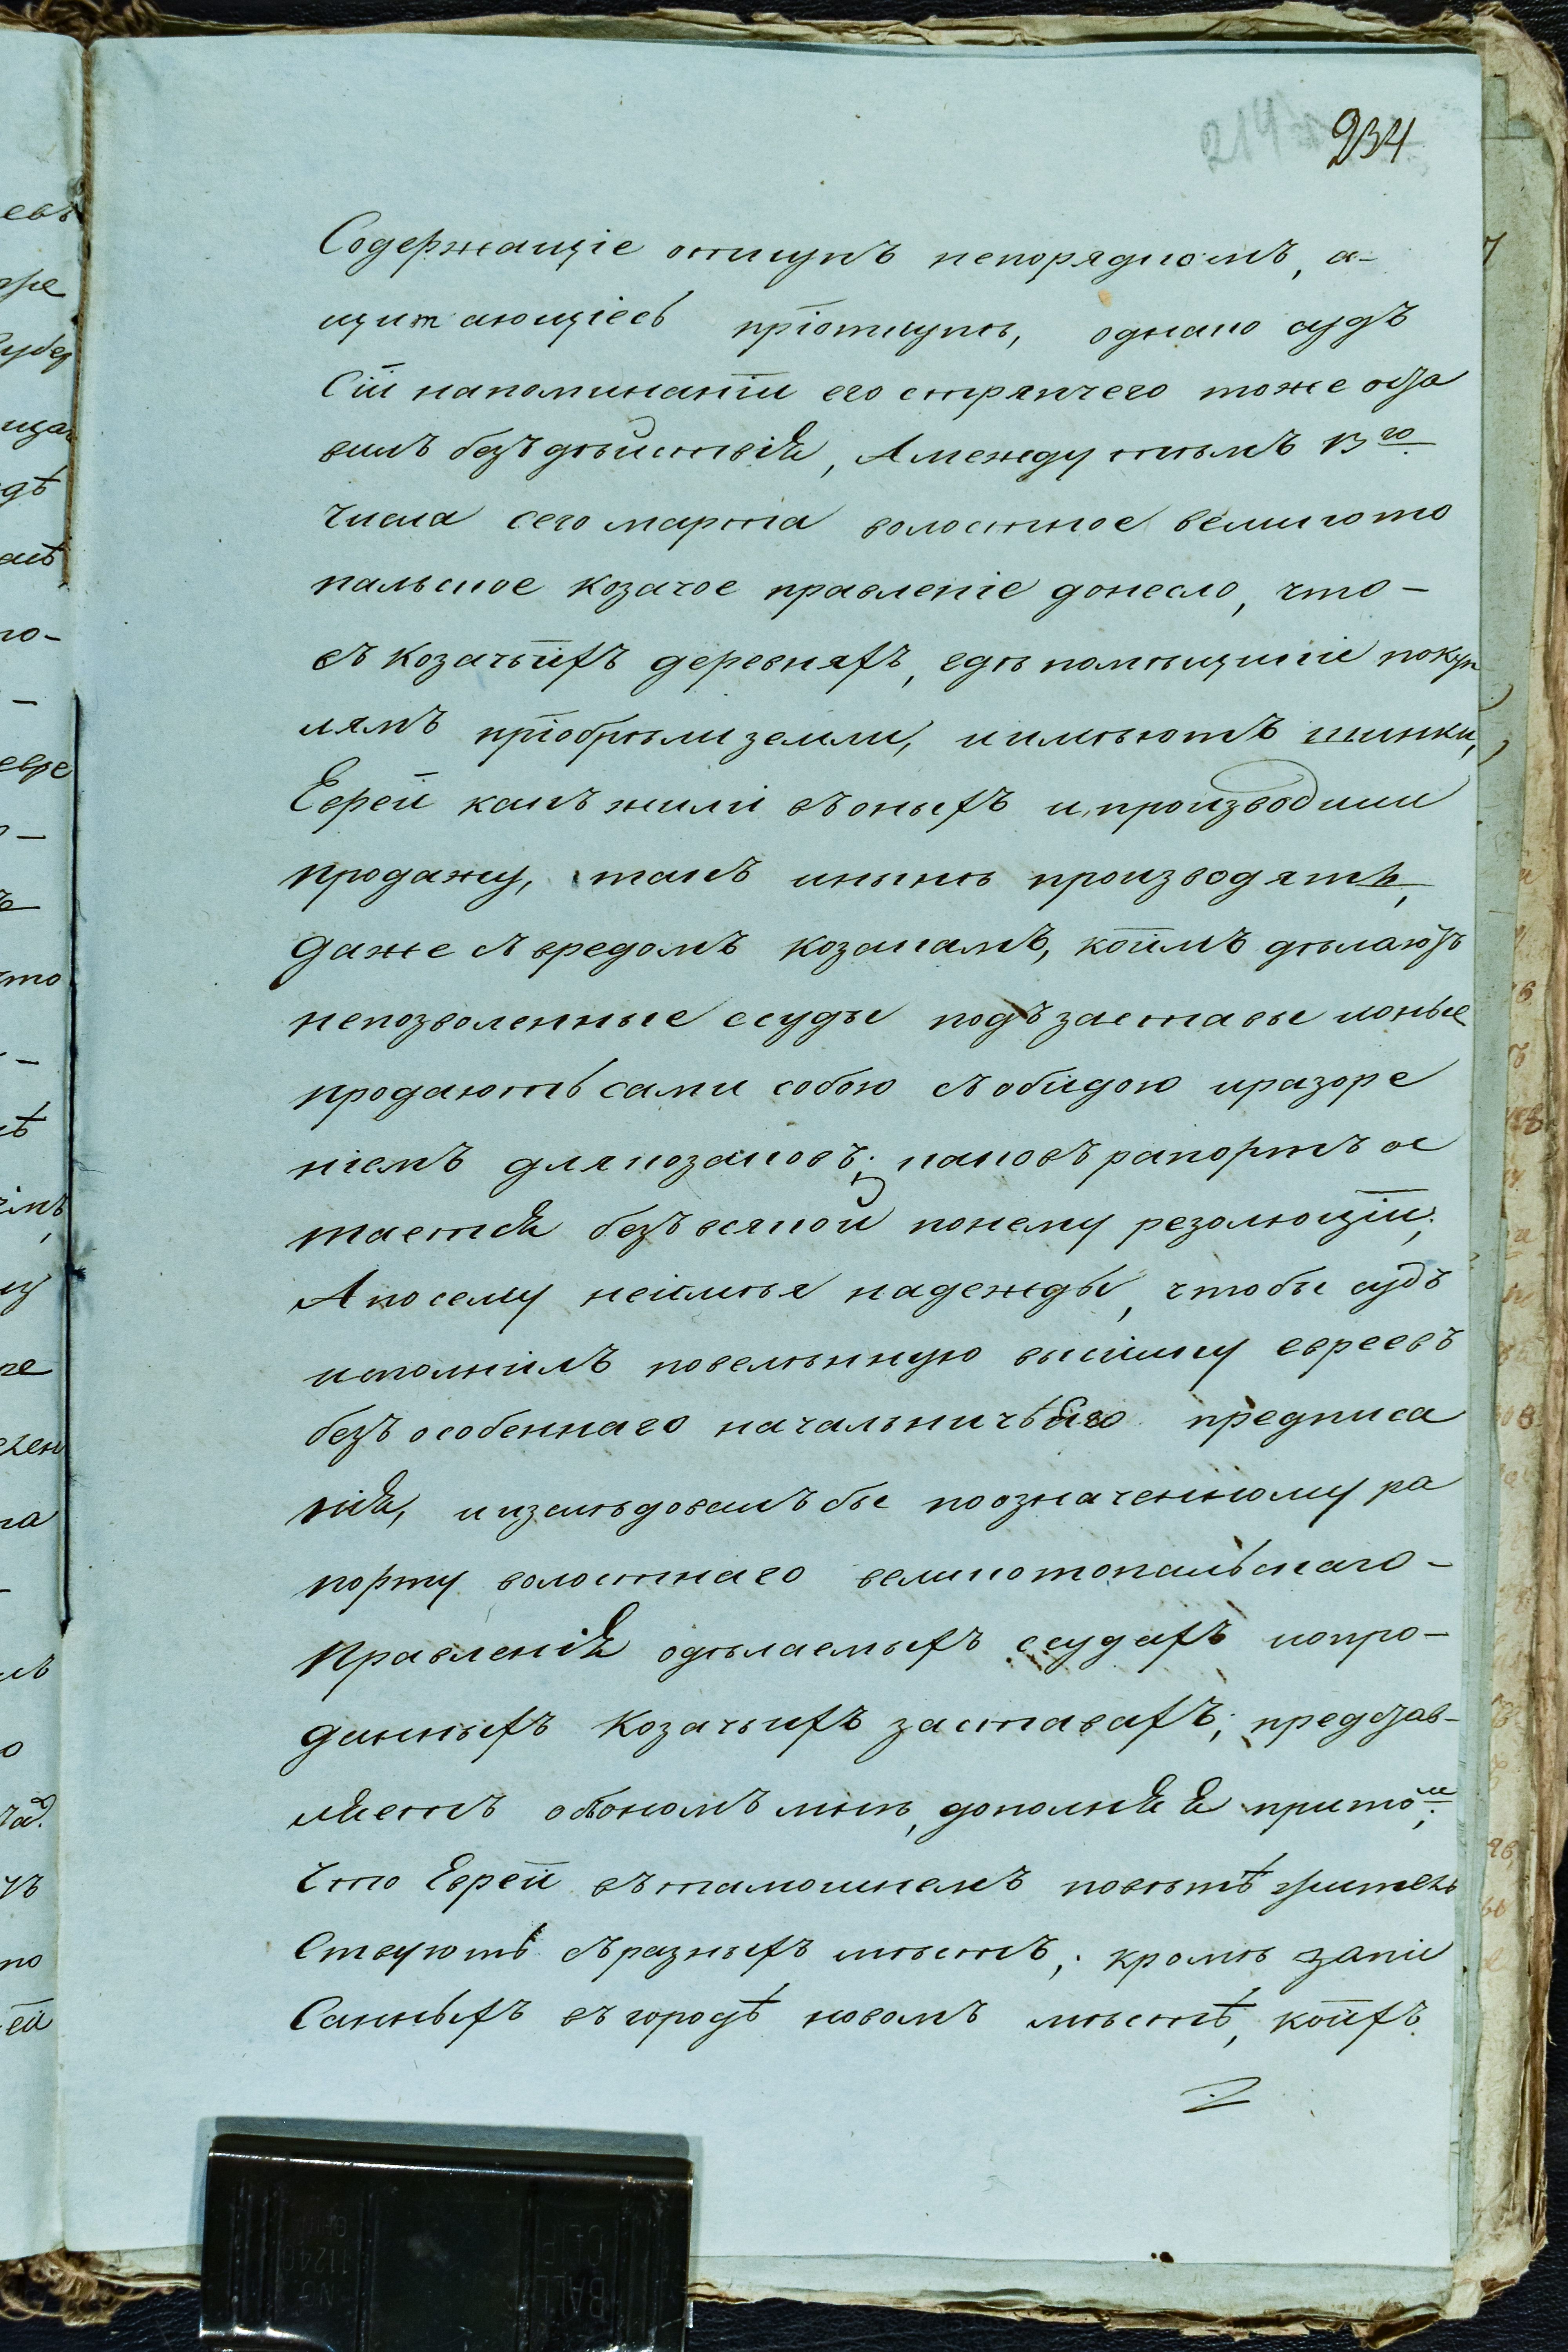 234
Содержащіе откупъ непорядкомъ, а-
щитающіесь пріоткупѣ, однако судъ
Сіи напоминаніи его стряпчего тоже оста
вилъ безъдѣйствія, Амежду тѣмъ 13го
числа сего марта волостное великото
пальское козачое правленіе донесло, что-
въ козачьіхъ деревняхъ, гдѣ помѣщикіе покуп
лямъ пріобрѣли земли, иимѣютъ шинки,
Евреи какъ жилі въоныхъ ипроизводили
продажу, такъ инынѣ производятъ,
даже съвредомъ козакамъ, коимъ дѣлаютъ
непозволенные ссуды подъ заставы ионые
продаютъ сами собою съобидою иразоре
ніемъ длякозаковъ; каковъ рапортъ ос
тается безъ всякой понему резолюціи;
Апосему неимѣя надежды, чтобы судъ
исполнилъ повелѣнную высилку евреевъ
безъ особеннаго начальничьяго предписа
нія, иизслѣдовалъ бы поозначенному ра
порту волостнаго великотопальскаго-
Правленія одѣлаемыхъ ссудахъ ипро-
данныхъ козачьихъ заставахъ; представ-
ляетъ обономъ мнѣ, дополняя притом;
Что Евреи вътамошнемъ повѣтѣ жител
Ствуютъ съразныхъ мѣстъ; кромѣ запи
Санныхъ въ городѣ новомъ мѣстѣ, коихъ